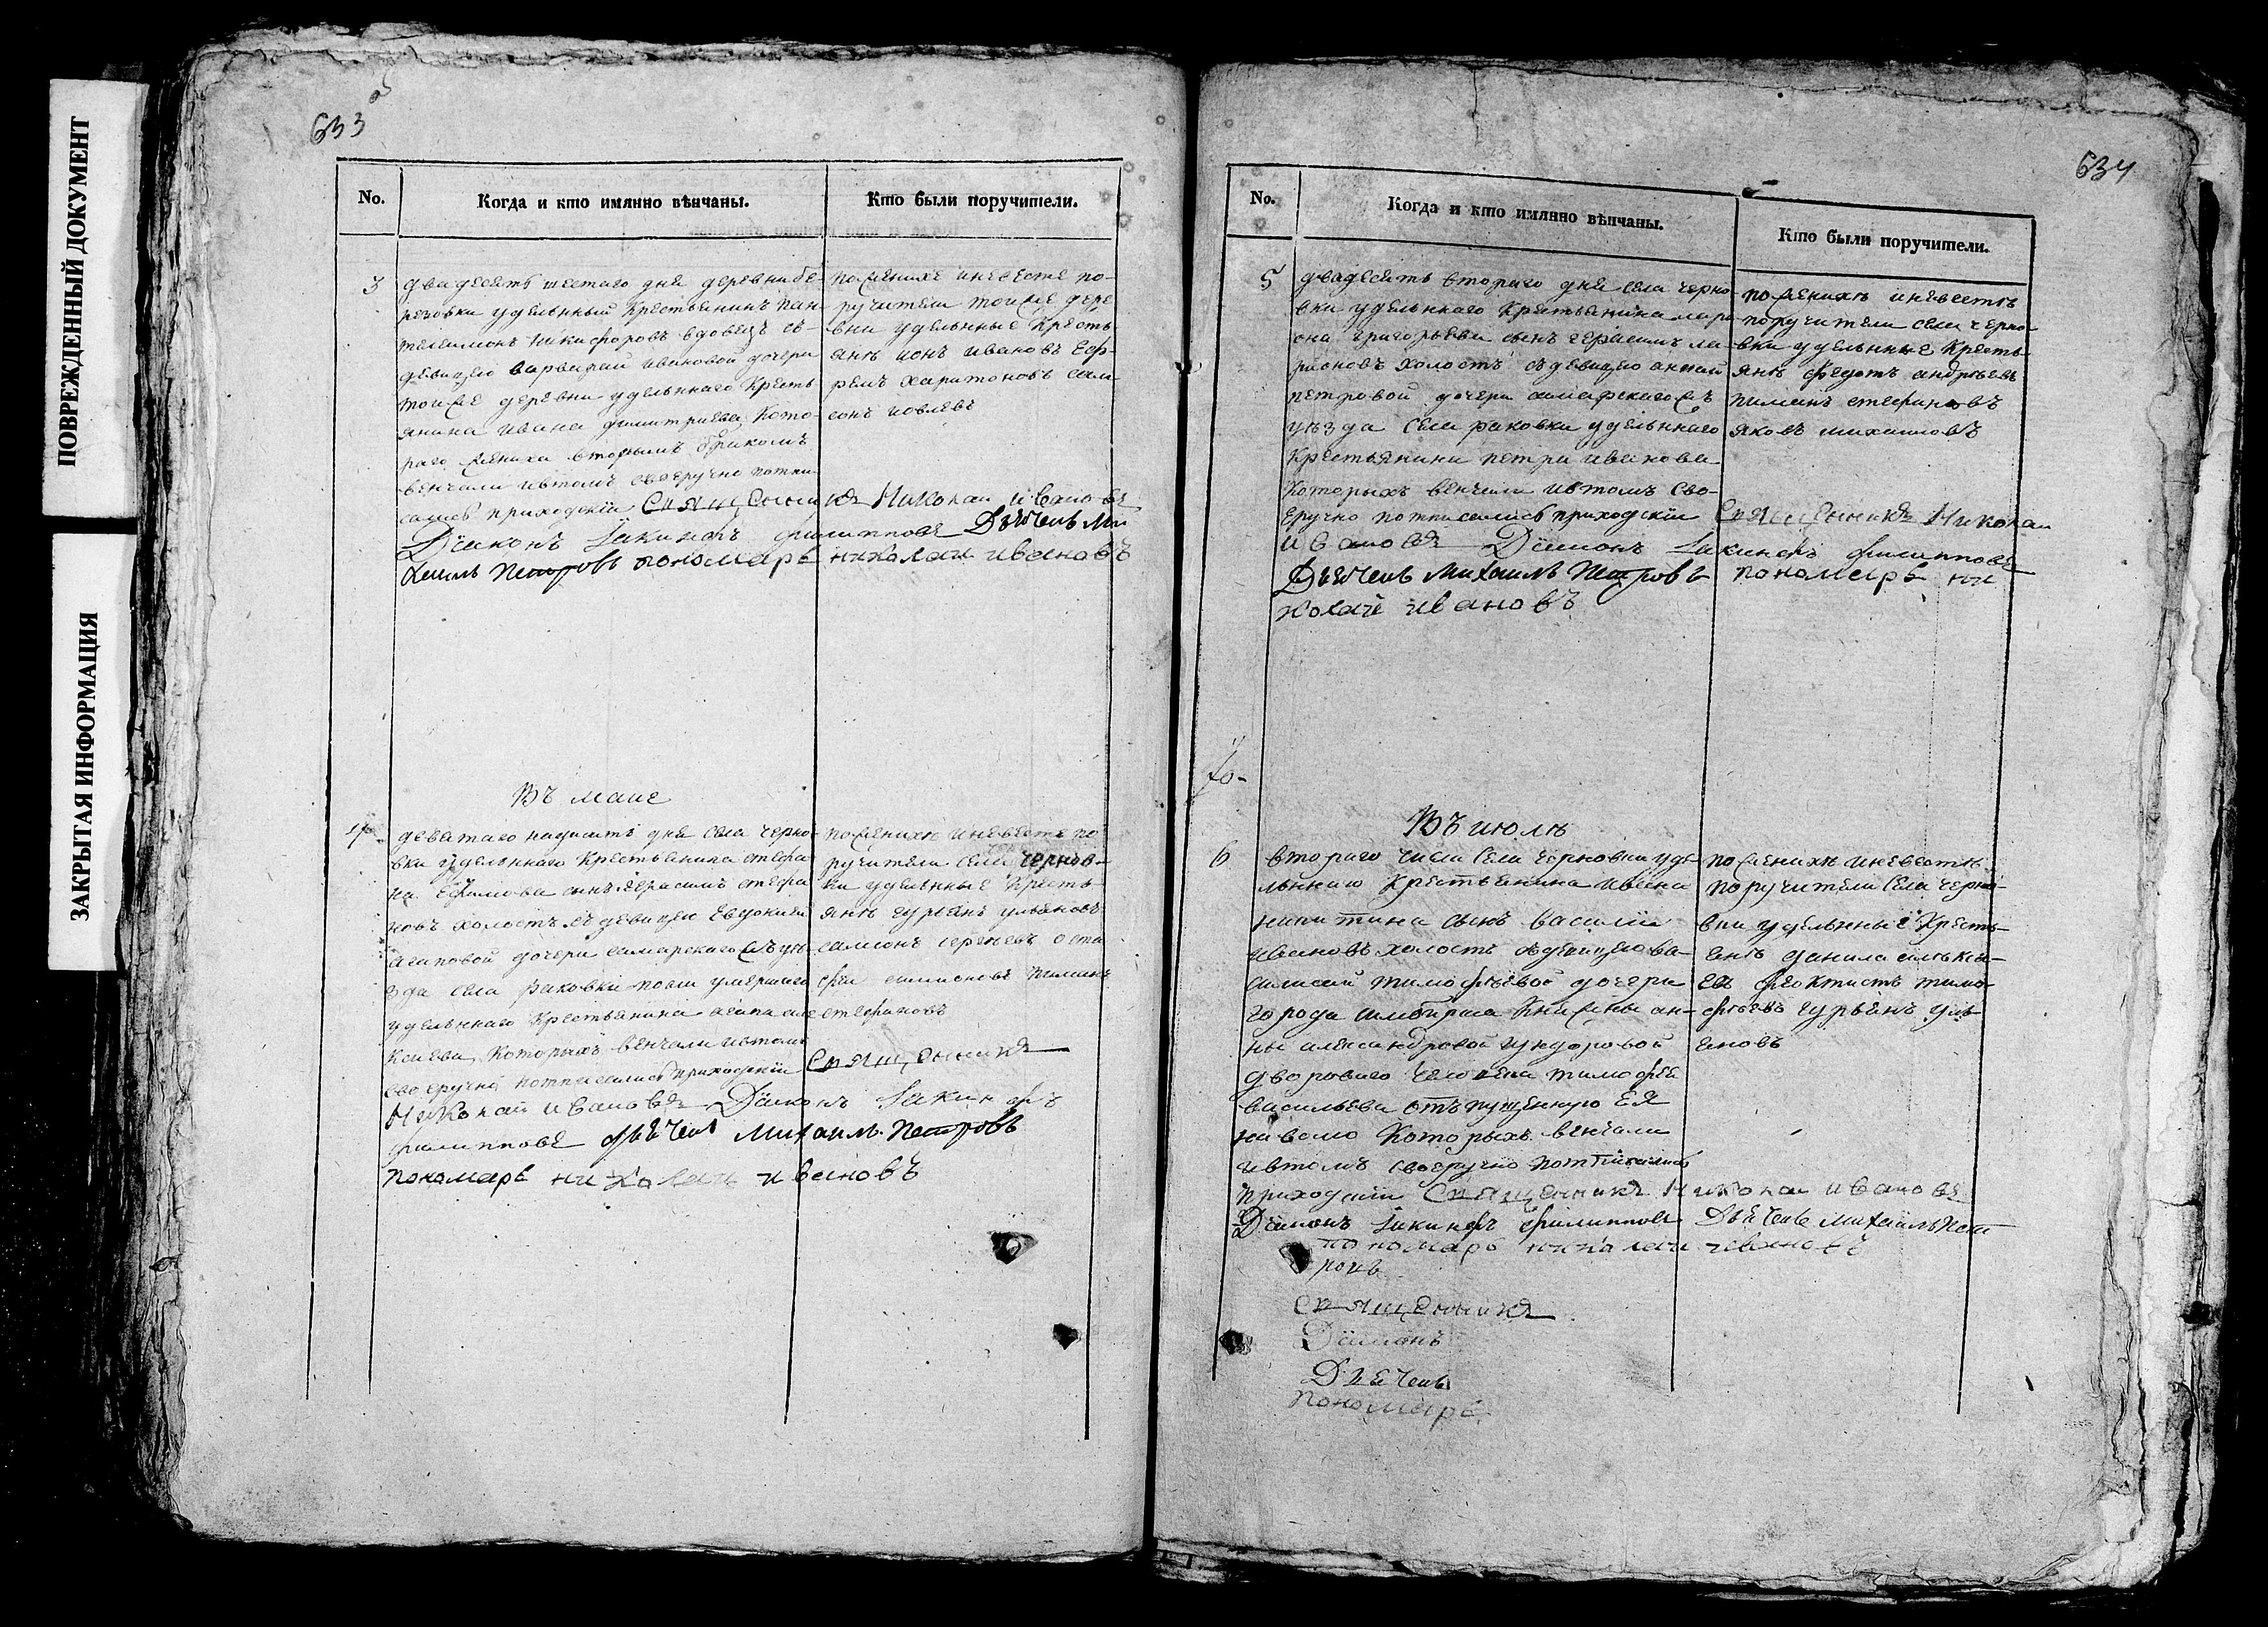 ПОВРЕЖДЕННЫЙ ДОКУМЕНТ
ЗАКРЫТАЯ ИНФОРМАЦИЯ
633
No.
Когда и кто имянно вѣнчаны.
Кто были поручители.
3
двадесять шестаго дня деревни бе-
резовки удельный крестьянинъ пан-
телеимонъ никифоровъ вдовецъ съ
девицею варварои ивановой дочери
тоиже деревни удельнаго кресть
янина ивана димитриева, кото-
раго жениха вторымъ бракомъ
венчали ивтомъ своеручно потпи
сались приходскии Священникъ Николаи Ивановъ
Диаконъ Iакинфъ филипповъ Дьячекъ Ми
хаилъ Петровъ пономарь николаи ивановъ
по женихе иневесте по-
ручители тоиже дере
вни удельные кресть
янѣ ионъ ивановъ Еф-
ремъ харитоновъ сам-
сонъ иовлевъ
Въ маие
4
деветаго надесять дня села черно
вки удельнаго крестьянина стефа
на Ефимова сынъ герасимъ стефа
новъ холостъ съ девицею Евдокиеи
агаповой дочери самарскаго уѣ
зда села раковки посли умершаго
удельнаго крестьянина агапа але
ксиева, которыхъ венчали ивтомъ
своеручно потписались приходскии Священникъ
Николаи Ивановъ Диаконъ Iакинфъ
филипповъ дьячекъ Михаилъ Петровъ
пономарь николаи ивановъ
по женихѣ иневесте по
ручители села чернов-
ки удельные кресть-
янѣ гурьянъ ульяновъ
самсонъ сергѣевъ оста
феи симионовъ пиминъ
стефановъ
634
No.
Когда и кто имянно вѣнчаны.
Кто были поручители.
5
двадесять втораго дня села черно
вки удельнаго крестьянина лари
она григорьева сынъ герасимъ ла
рионовъ холостъ съ девицею аннои
петровой дочери самарскаго
уѣзда села раковки удельнаго
крестьянина петра иванова
которыхъ венчали ивтомъ сво-
еручно потписались приходскии Священникъ Николаи
Ивановъ Диаконъ Iакинфъ филипповъ
Дьячекъ Михаилъ Петровъ пономарь ни
колаи ивановъ
по женихѣ иневестѣ
поручители села черно-
вки удельные кресть-
янѣ федотъ андрѣевъ
пиминъ стефановъ
яковъ михаиловъ
Въ июлѣ
6
втораго числа села черновки уде-
льнаго крестьянина ивана
никитина сынъ василии
ивановъ холостъ съ девицею ва-
силисаи тимофѣевой дочери
города симбирска княжны ан-
ны александровой ундоровой
двороваго человека тимофея
васильева отъпущенную Ея
на волю которыхъ венчали
ивтомъ своеручно потписались
приходскии Священникъ Николаи Ивановъ
Диаконъ Iакинфъ филипповъ Дьячекъ Михаилъ Пет
пономарь николаи ивановъ
ровъ
Священникъ
Диаконъ
Дьячекъ
Пономарь
по женихѣ иневестѣ
поручители села черно-
вки удельные кресть-
янѣ данила
феоктистъ тимо-
фѣевъ гурьянъ уль
яновъ